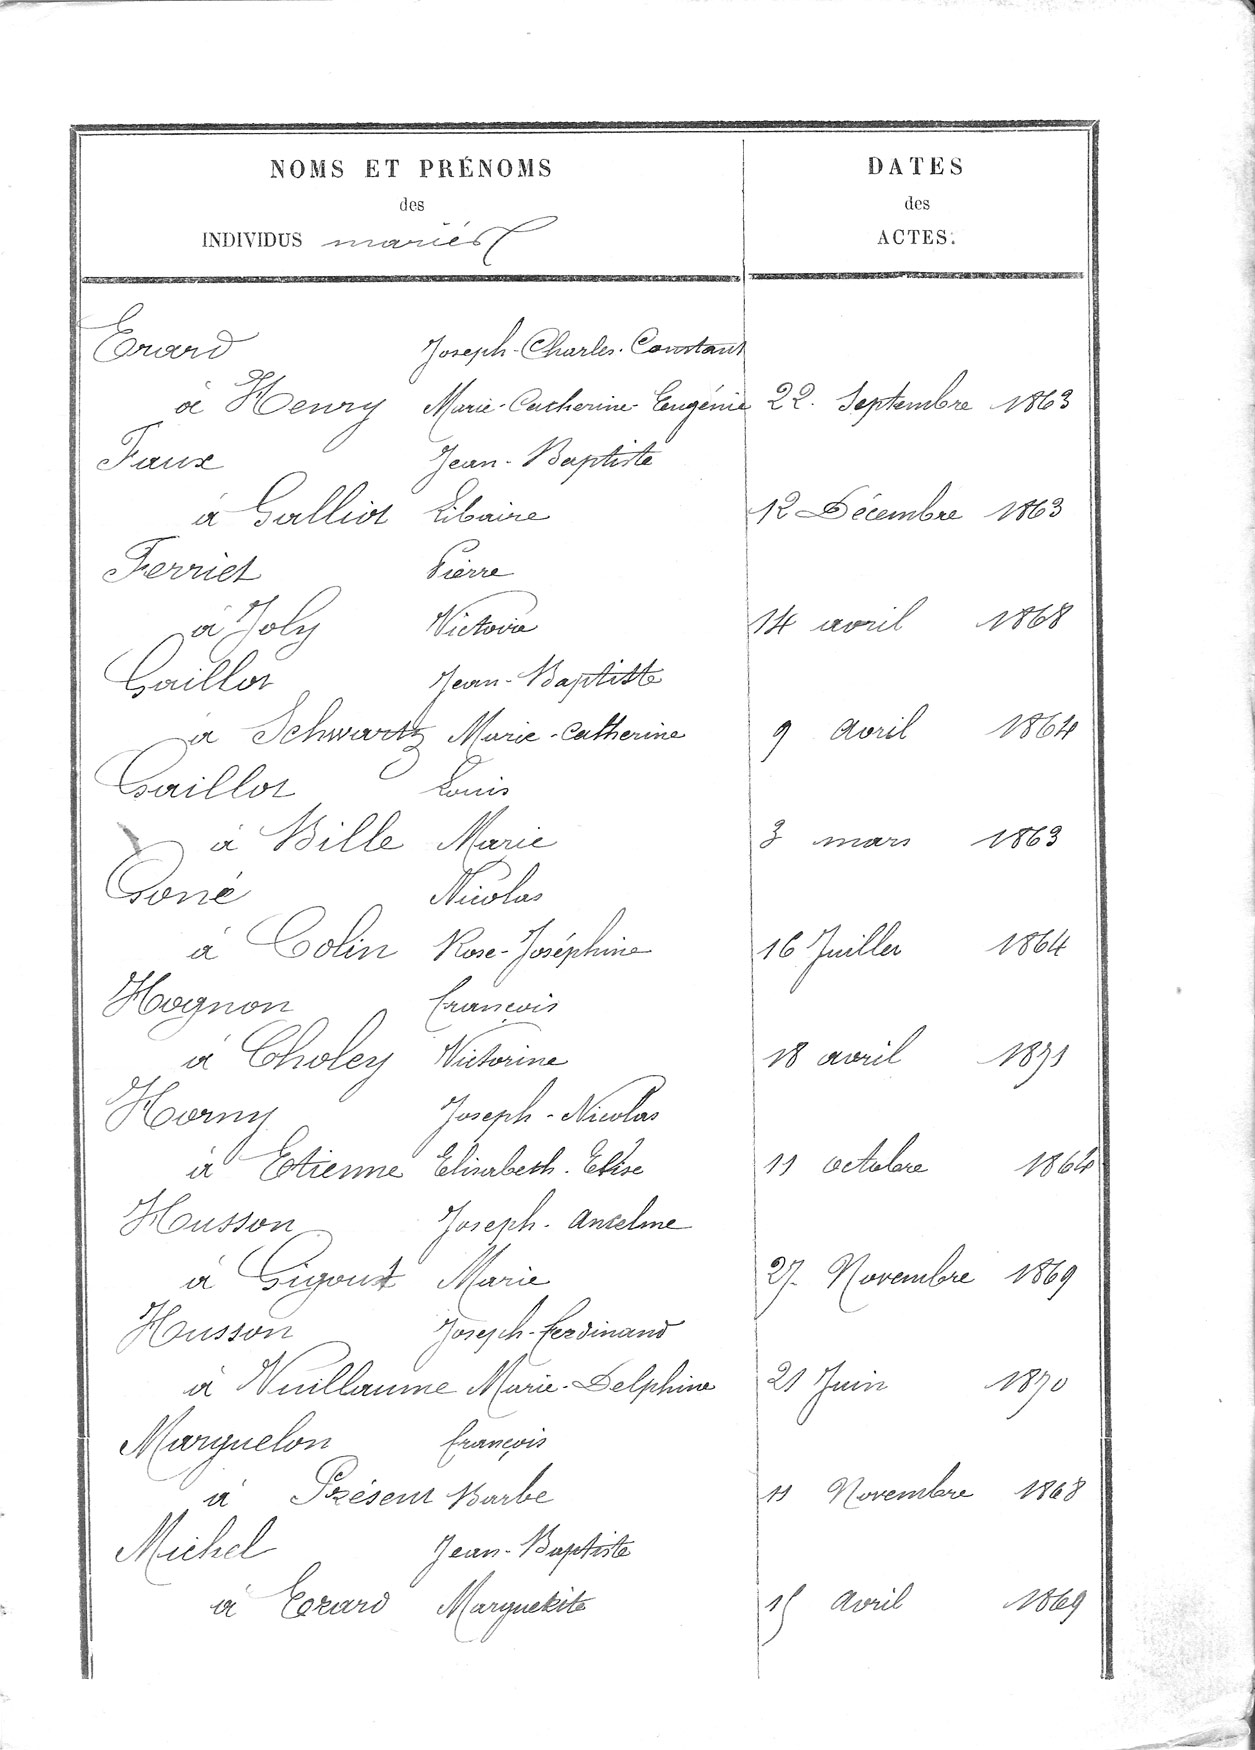 NOMS ET PRÉNOMS
des
INDIVIDUS mariés
DATES
des
ACTES.
Erard Joseph-Charles-Constant
à Henry Marie-Catherine-Eugénie 22 Septembre 1863
Faux Jean-Baptiste
à Galliot Libaire 12 Décembre 1863
Ferriet Pierre
à Joly Victoria 14 avril 1868
Gaillot Jean-Baptiste
à Schwartz Marie-Catherine 9 Avril 1864
Gaillot Louis
à Bille Marie 3 mars 1863
Goné Nicolas
à Colin Rose-Joséphine 16 Juillet 1864
Hognon François
à Choley Victorine 18 avril 1871
Horny Joseph-Nicolas
à Etienne Elisabeth-Elise 11 octobre 1864
Husson Joseph-Anselme
à Gigout Marie 27 Novembre 1869
Husson Joseph-Ferdinand
à Vuillaume Marie-Delphine 21 Juin 1870
Marguelon François
à Présent Barbe 11 Novembre 1868
Michel Jean-Baptiste
à Erard Marguerite 15 Avril 1869